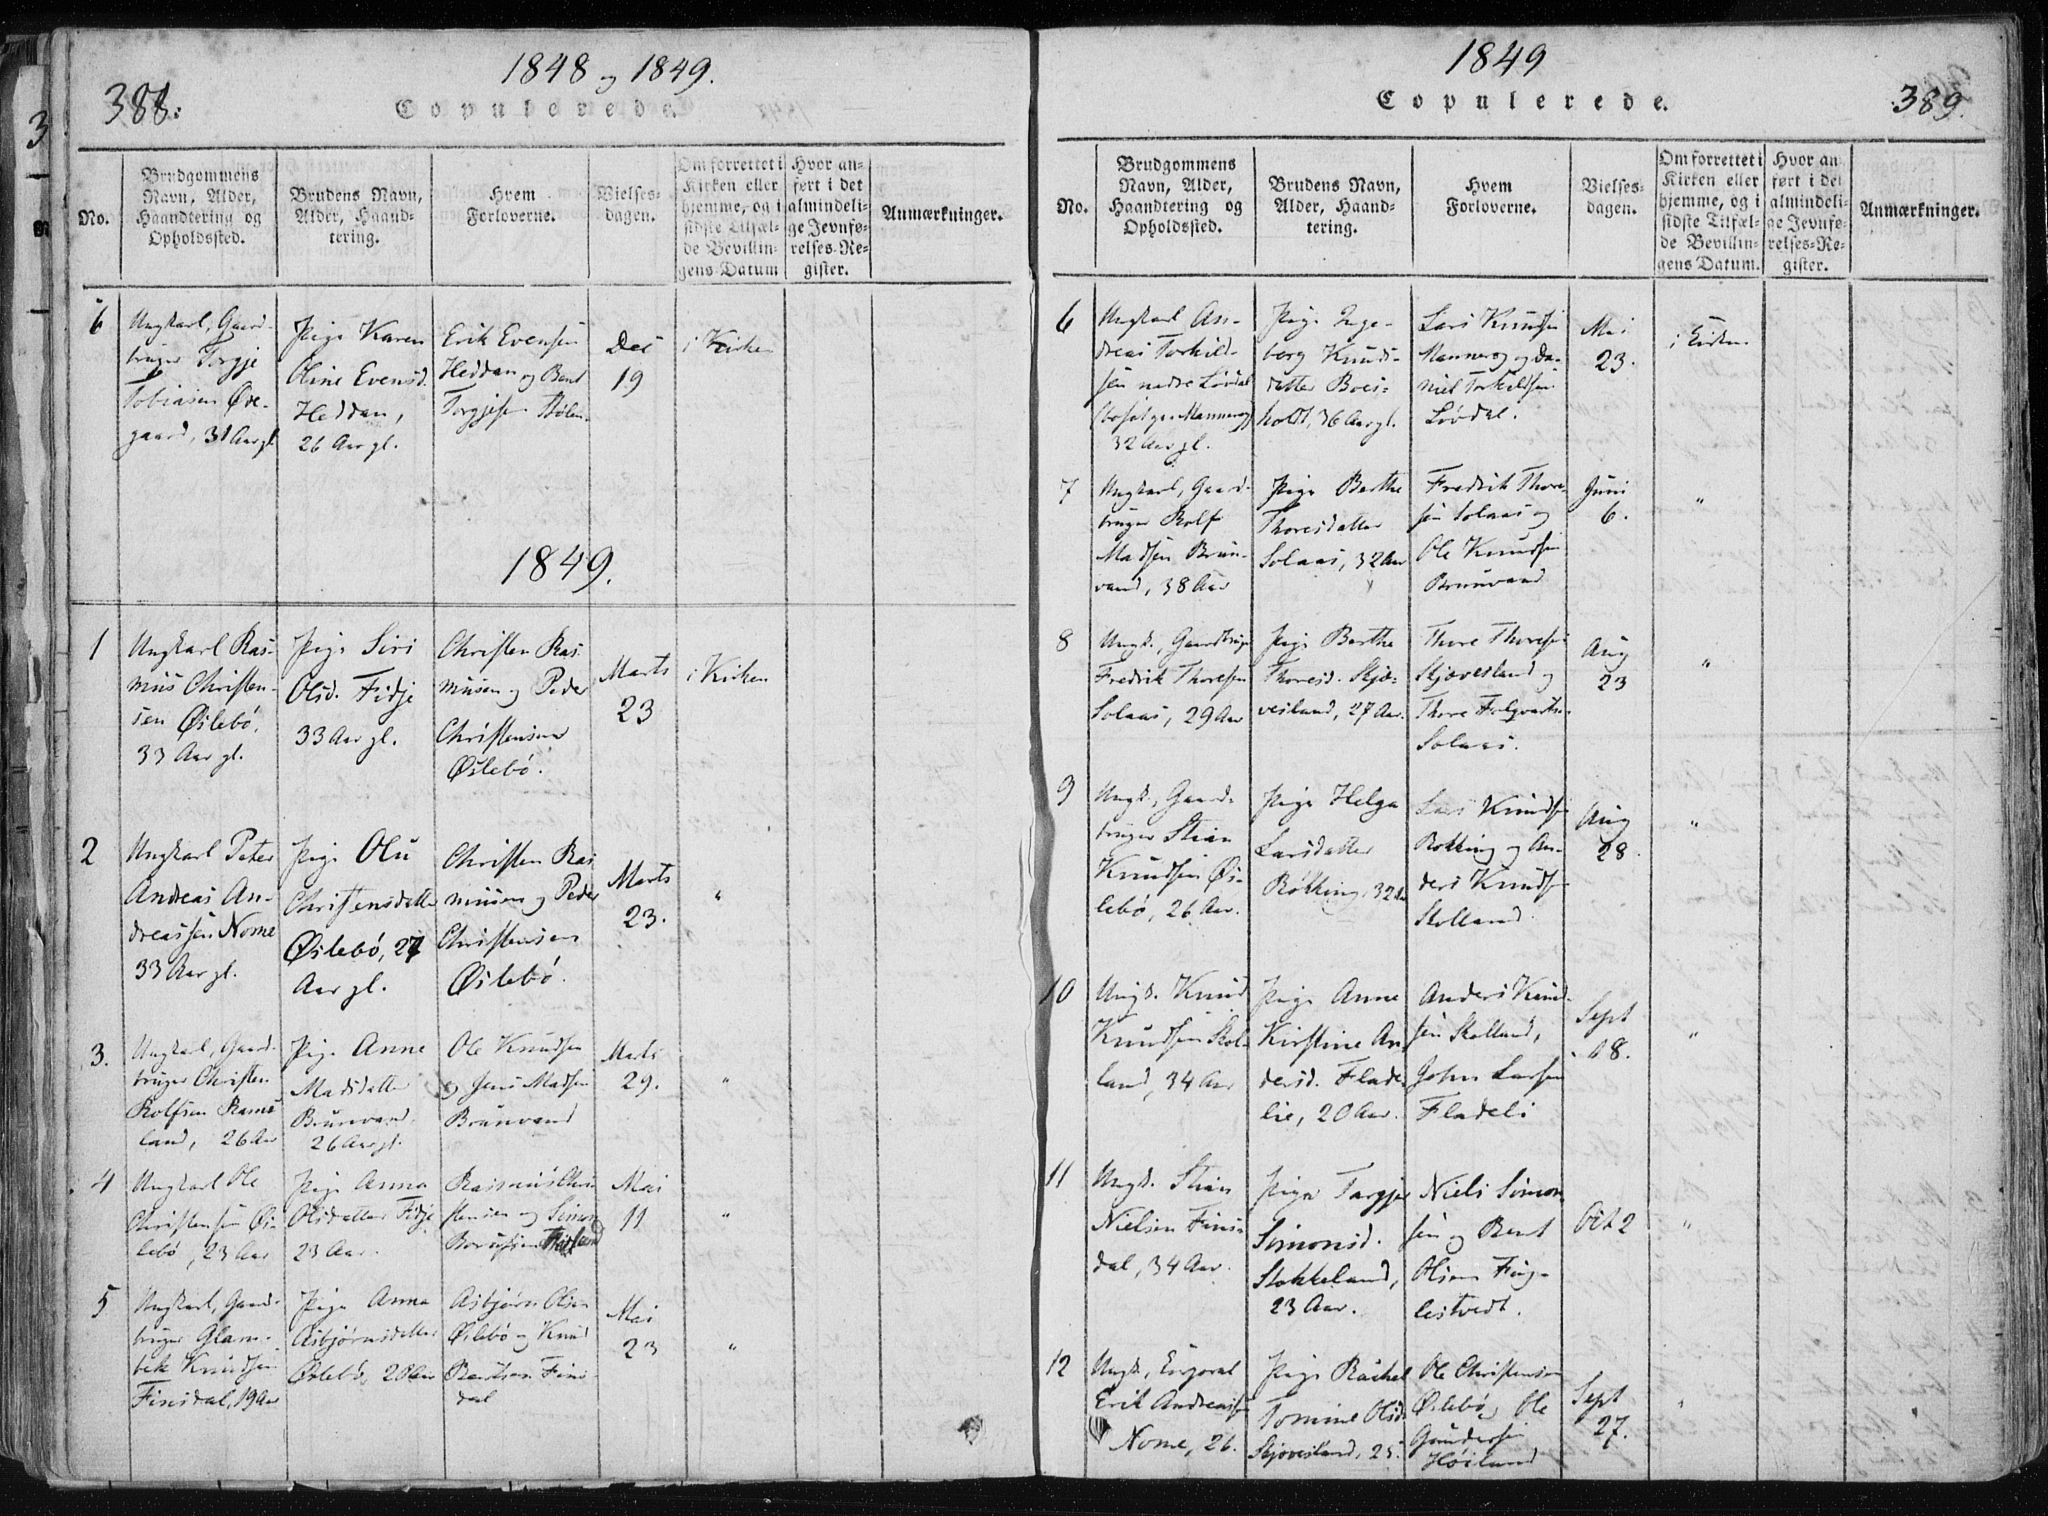 388.
1848 og 1849.
Copulerede.
No.
Brudgommens
Navn, Alder,
Haandtering og
Opholdssted.
Brudens Navn,
Alder, Haand-
tering.
Hvem
Forloverne.
Vielses-
dagen.
Om forrettet i
Kirken eller
hjemme, og i
sidste Tilfæl-
de Bevillin-
gens Datum
Hvor an-
ført i det
almindeli-
ge Jevnfø-
relses-Re-
gister.
Anmærkninger.
6
Ungkarl, Gaard-
bruger Torgje
Tobiasen Øve-
gaard, 31 Aar gl.
Pige Karen
Oline Evensd.
Heddan,
26 Aar gl.
Erik Evensen
Heddan og Bent
Torgjesen
Dec
19
i Kirken
1849.
1
Ungkarl Ras-
mus Christen-
sen Øslebø,
33 Aar gl.
Pige Siri
Olsd. Fidje
33 Aar gl.
Christen Ras-
musen og Peder
Christensen
Øslebø.
Marts
23
i Kirken
2
Ungkarl Peter
Andreas An-
dreassen Nome
33 Aar gl.
Pige Olu
Christensdatter
Øslebø, 27
Aar gl.
Christen Ras
musen og Peder
Christensen
Øslebø.
Marts
23.
"
3.
Ungkarl, Gaard-
bruger Christen
Rolfsen Rams
land, 26 Aar
Pige Anne
Madsdatter
Brunvand,
26 Aar gl.
Ole Knudsen
og Jens Madsen
Brunvand
Marts
29.
"
4
Ungkarl Ole
Christensen Øs-
lebø, 23 Aar
Pige Anna
Olsdatter Fidje
23 Aar.
Rasmus Chri
stensen og Simon
Mai
11
"
5
Ungkarl, Gaard-
bruger Glam-
bek Knudsen
Finsdal, 19 Aar
Pige Anna
Asbjørnsdatter
Øslebø, 28 Aar
Asbjørn Olsen
Øslebø og Knud
Bentsen Fins-
dal
Mai
23
"
1849
Copulerede.
389.
No.
Brudgommens
Navn, Alder,
Haandtering og
Opholdssted.
Brudens Navn,
Alder, Haand-
tering.
Hvem
Forloverne.
Vielses-
dagen.
Om forrettet i
Kirken eller
hjemme, og i
sidste Tilfæl-
de Bevillin-
gens Datum.
Hvor an
ført i det
almindeli-
ge Jevnfø-
relses-Re-
gister.
Anmærkninger.
6
Ungkarl An-
dreas Torkild-
sen nedre Løvdal
32 Aar gl.
Pige Inge-
borg Knuds-
datter Boes-
holdt, 36 Aar gl.
Lars Knudsen
og Da-
niel Torkeldsen
Løvdal.
Mai
23.
i Kirken
7
Ungkarl, Gaard-
bruger Rolf
Madsen Brun-
vand, 38 Aar
Pige Berthe
Thoresdatter
Solaas, 32 Aar
Fredrik Thore-
sen Solaas og
Ole Knudsen
Brunvand
Juni
6.
"
8
Ungk., Gaardbruger
Fredrik Thoresen
Solaas, 29 Aar
Pige Berthe
Thoresd. Skjæ-
vesland, 27 Aar.
Thore Thoresen
Skjævesland og
Thore
Solaas.
Aug
23
"
9
Ungk., Gaard-
bruger Stian
Knudsen Øs-
lebø, 26 Aar.
Pige Helga
Larsdatter
Røkking, 32 Aar
Lars Knudsen
Røkking og An-
ders Knudsen
Stolland.
Aug
28.
"
10
Ungk. Knud
Knudsen Stol-
land, 34 Aar
Pige Anne
Kirstine An-
dersd. Flade
lie, 20 Aar.
Anders Knud-
sen Stolland,
John Larsen
Fladeli
Sept
18.
"
11
Ungk. Stian
Nielsen Fins-
dal, 34 Aar.
Pige Torgjer
Simonsd.
Stokkeland,
23 Aar.
Niels Simon
sen og Bent
Olsen Fug-
lestvedt.
Oct 2
"
12
Ungk., Corporal
Erik Andreassen
Nome, 26.
Pige Rachel
Tomine Olsd.
Skjævesland, 25
Ole Christensen
Øslebø, Ole
Gundersen
Høiland
Sept
27.
"